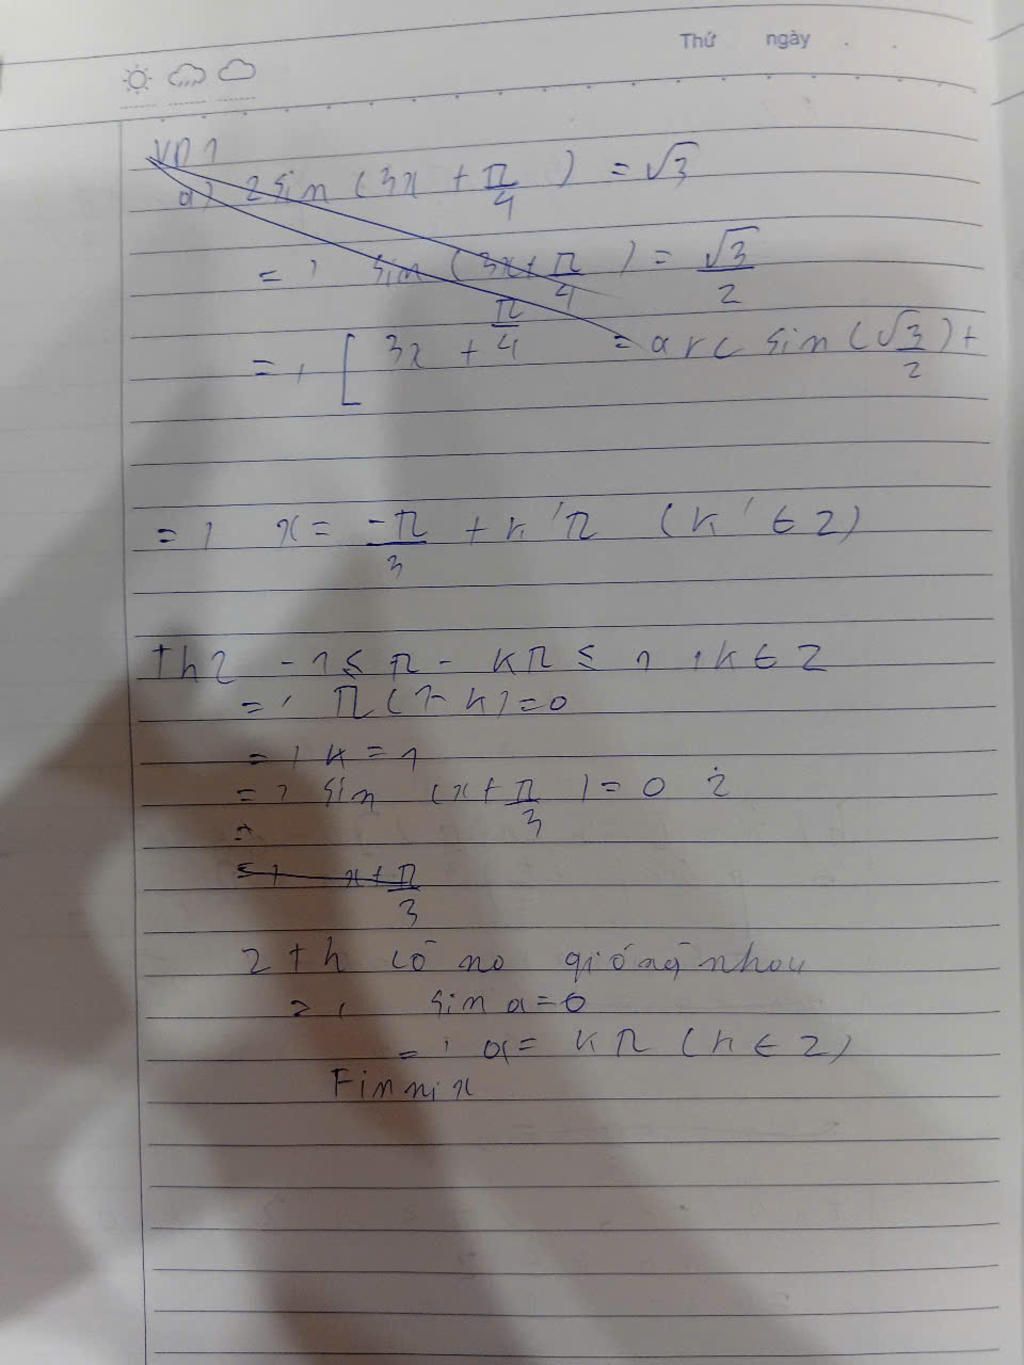 Thứ ngày . .
VD1
a) 2 sin (3x + π/4) = √3
=> sin (3x + π/4) = √3/2
=> [ 3x + π/4 = arc sin (√3/2) +
=> x = -π/3 + k'π (k' ∈ Z)
Th2 -1 ≤ π - kπ ≤ 1 , k ∈ Z
=> π(1 - k) = 0
=> k = 1
=> sin (x + π/3) = 0
x + π/3
2 th có no giống nhau
=> sin a = 0
=> a = kπ (k ∈ Z)